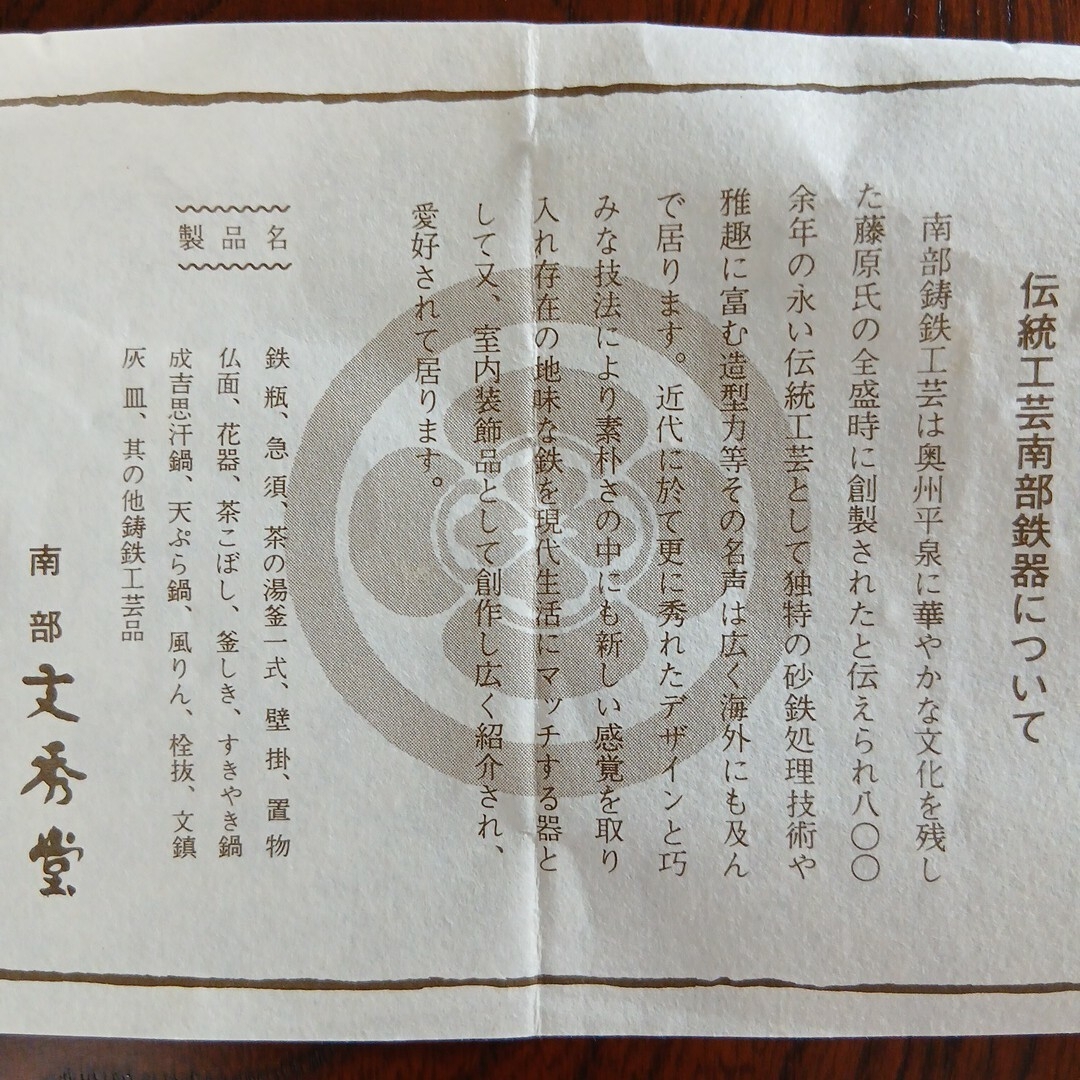 伝統工芸南部鉄器について
南部鋳鉄工芸は奥州平泉に華やかな文化を残し
た藤原氏の全盛時に創製されたと伝えられ八〇〇
余年の永い伝統工芸として独特の砂鉄処理技術や
雅趣に富む造型力等その名声は広く海外にも及ん
で居ります。 近代に於て更に秀れたデザインと巧
みな技法により素朴さの中にも新しい感覚を取り
入れ存在の地味な鉄を現代生活にマッチする器と
して又、室内装飾品として創作し広く紹介され、
愛好されて居ります。
製品名
鉄瓶、急須、茶の湯釜一式、壁掛、置物
仏面、花器、茶こぼし、釜しき、すきやき鍋
成吉思汗鍋、天ぷら鍋、風りん、栓抜、文鎮
灰皿、其の他鋳鉄工芸品
南部文秀堂